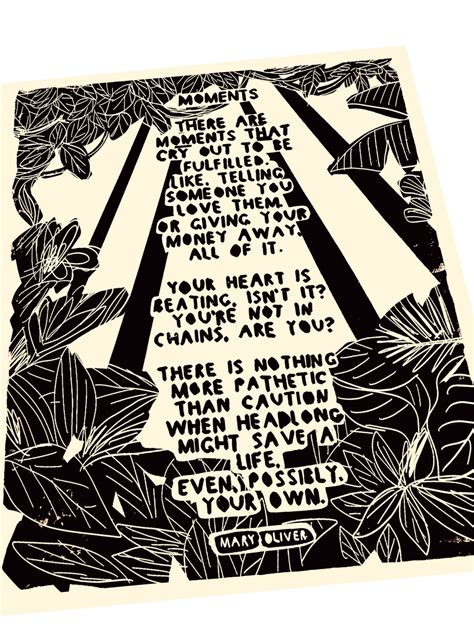 MOMENTS
THERE ARE
MOMENTS THAT
CRY OUT TO BE
FULFILLED.
LIKE, TELLING
SOMEONE YOU
LOVE THEM.
OR GIVING YOUR
MONEY AWAY,
ALL OF IT.
YOUR HEART IS
BEATING, ISN'T IT?
YOU'RE NOT IN
CHAINS, ARE YOU?
THERE IS NOTHING
MORE PATHETIC
THAN CAUTION
WHEN HEADLONG
MIGHT SAVE A
LIFE,
EVEN, POSSIBLY,
YOUR OWN.
MARY OLIVER